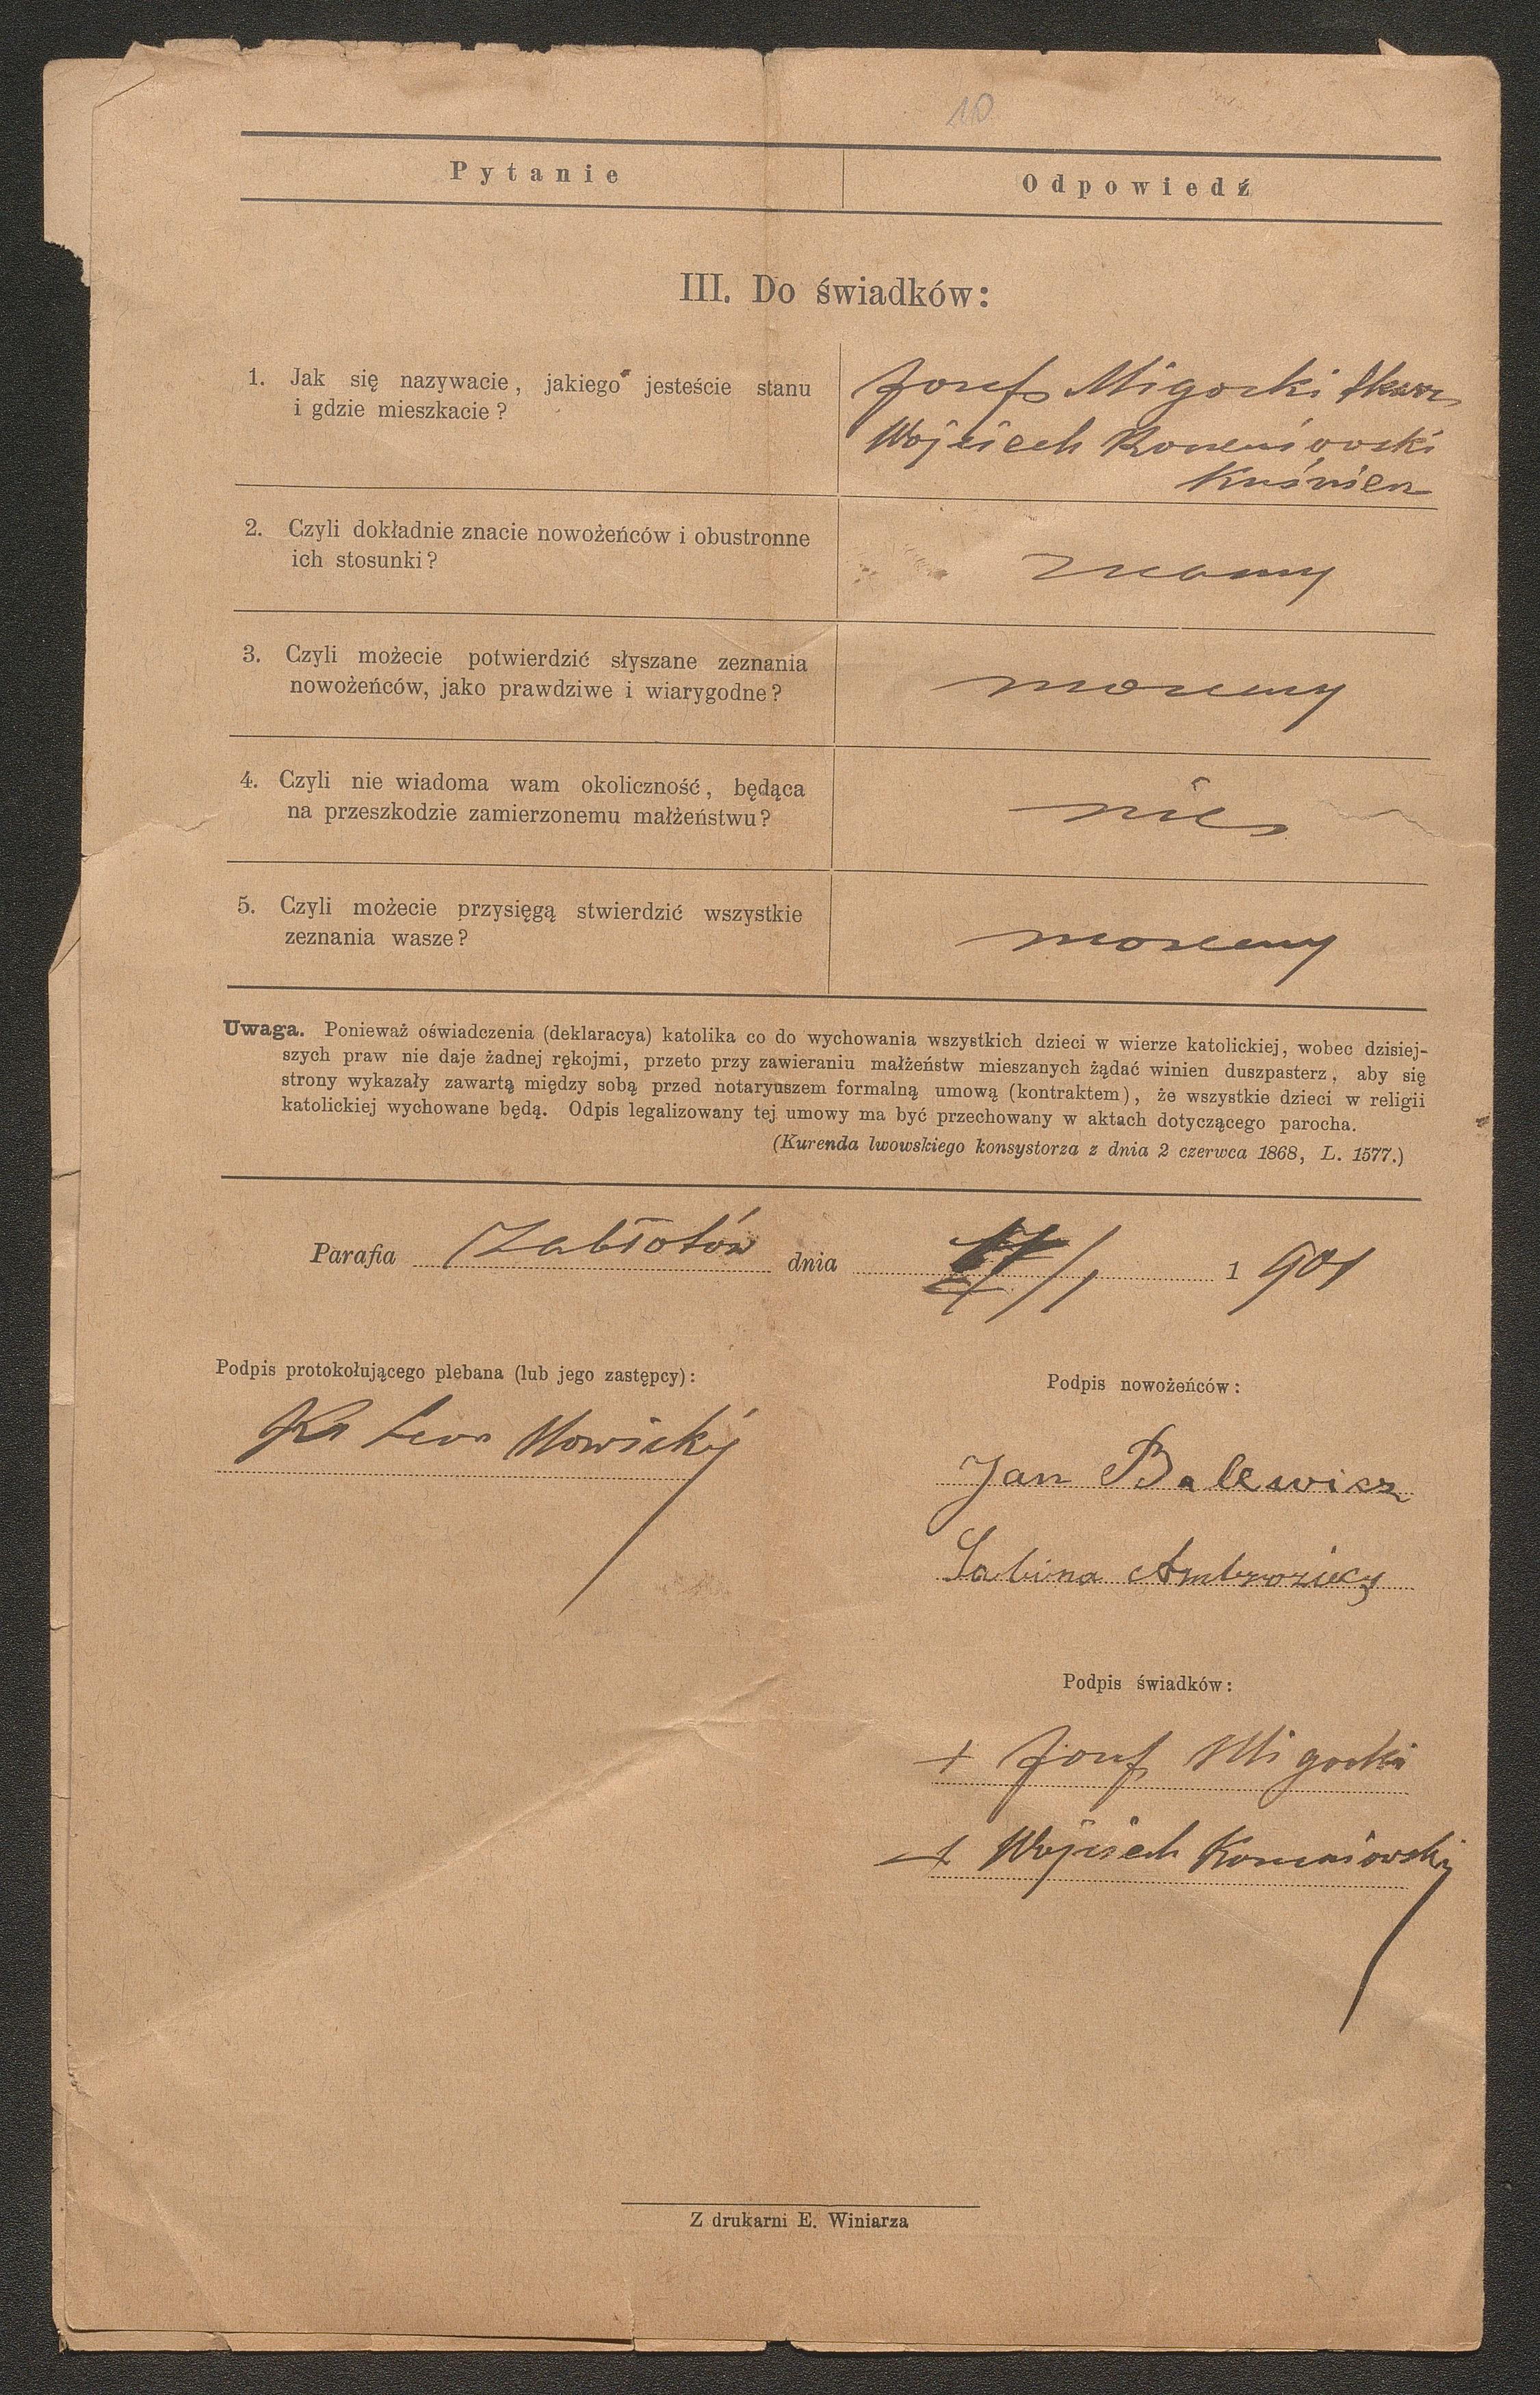 10
Pytanie
Odpowiedź
III. Do świadków:
1. Jak się nazywacie, jakiego jesteście stanu
i gdzie mieszkacie?
Josef Migocki tkacz
Wojciech
Kuśnierz
2. Czyli dokładnie znacie nowożeńców i obustronne
ich stosunki?
znamy
3. Czyli możecie potwierdzić słyszane zeznania
nowożeńców, jako prawdziwe i wiarygodne?
mozemy
4. Czyli nie wiadoma wam okoliczność, będąca
na przeszkodzie zamierzonemu małżeństwu?
nie
5. Czyli możecie przysięgą stwierdzić wszystkie
zeznania wasze?
mozemy
Uwaga. Ponieważ oświadczenia (deklaracya) katolika co do wychowania wszystkich dzieci w wierze katolickiej, wobec dzisiej-
szych praw nie daje żadnej rękojmi, przeto przy zawieraniu małżeństw mieszanych żądać winien duszpasterz, aby się
strony wykazały zawartą między sobą przed notaryuszem formalną umową (kontraktem), że wszystkie dzieci w religii
katolickiej wychowane będą. Odpis legalizowany tej umowy ma być przechowany w aktach dotyczącego parocha.
(Kurenda lwowskiego konsystorza z dnia 2 czerwca 1868, L. 1577.)
Parafia Zabłotów dnia /1 1901
Podpis protokołującego plebana (lub jego zastępcy):
Podpis nowożeńców:
Ks Leon Nowicky
Jan Balewicz
Sabina Ambroziecy
Podpis świadków:
+ Josef Migocki
+ Wojciech
Z drukarni E. Winiarza